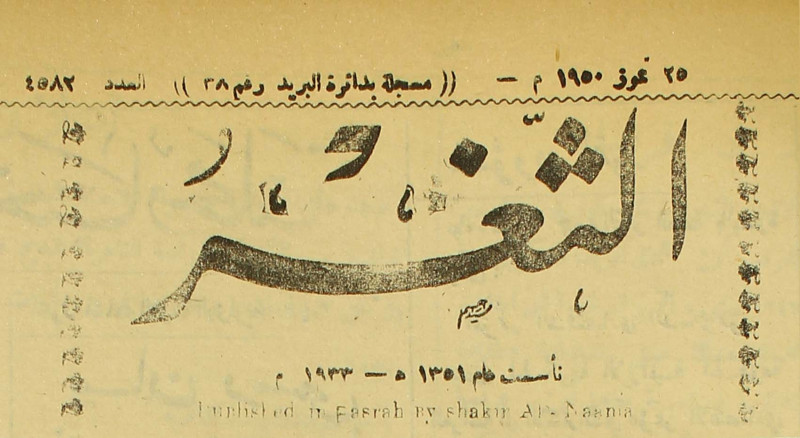 ٢٥ تموز ١٩٥٠ م — (( مسجلة بدائرة البريد رقم ٣٨ )) العدد ٤٥٨٢
الثغر
تأسست عام ١٣٥١ ه — ١٩٣٣ م
Published in Basrah By shakir Al-Naama